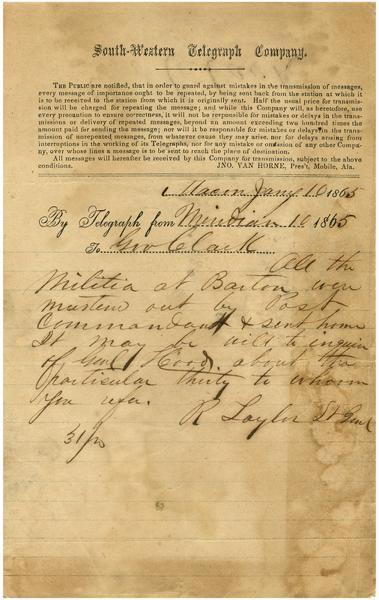 South-Western Telegraph Company.
THE PUBLIC are notified, that in order to guard against mistakes in the transmission of messages,
every message of importance ought to be repeated, by being sent back from the station at which it
is to be received to the station from which it is originally sent. Half the usual price for transmis-
sion will be charged for repeating the message; and while this Company will, as heretofore, use
every precaution to ensure correctness, it will not be responsible for mistakes or delays in the trans-
missions or delivery of repeated messages, beyond an amount exceeding two hundred times the
amount paid for sending the message; nor will it be responsible for mistakes or delays in the trans-
mission of unrepeated messages, from whatever cause they may arise, nor for delays arising from
interruptions in the working of its Telegraphs, nor for any mistake or omission of any other Company,
over whose lines a message is to be sent to reach the place of destination.
All messages will hereafter be received by this Company for transmission, subject to the above
conditions. JNO. VAN HORNE, Pres't, Mobile, Ala.
Macon Jany 10 1865
By Telegraph from Meridian 10 1865
To Gov Clark
All the
Militia at Barton were
mustered out by Post
Commandant & sent home
It may be well to enquire
of Genl Hood about the
particular thirty to whom
you refer.
R Taylor Lt Genl
31/